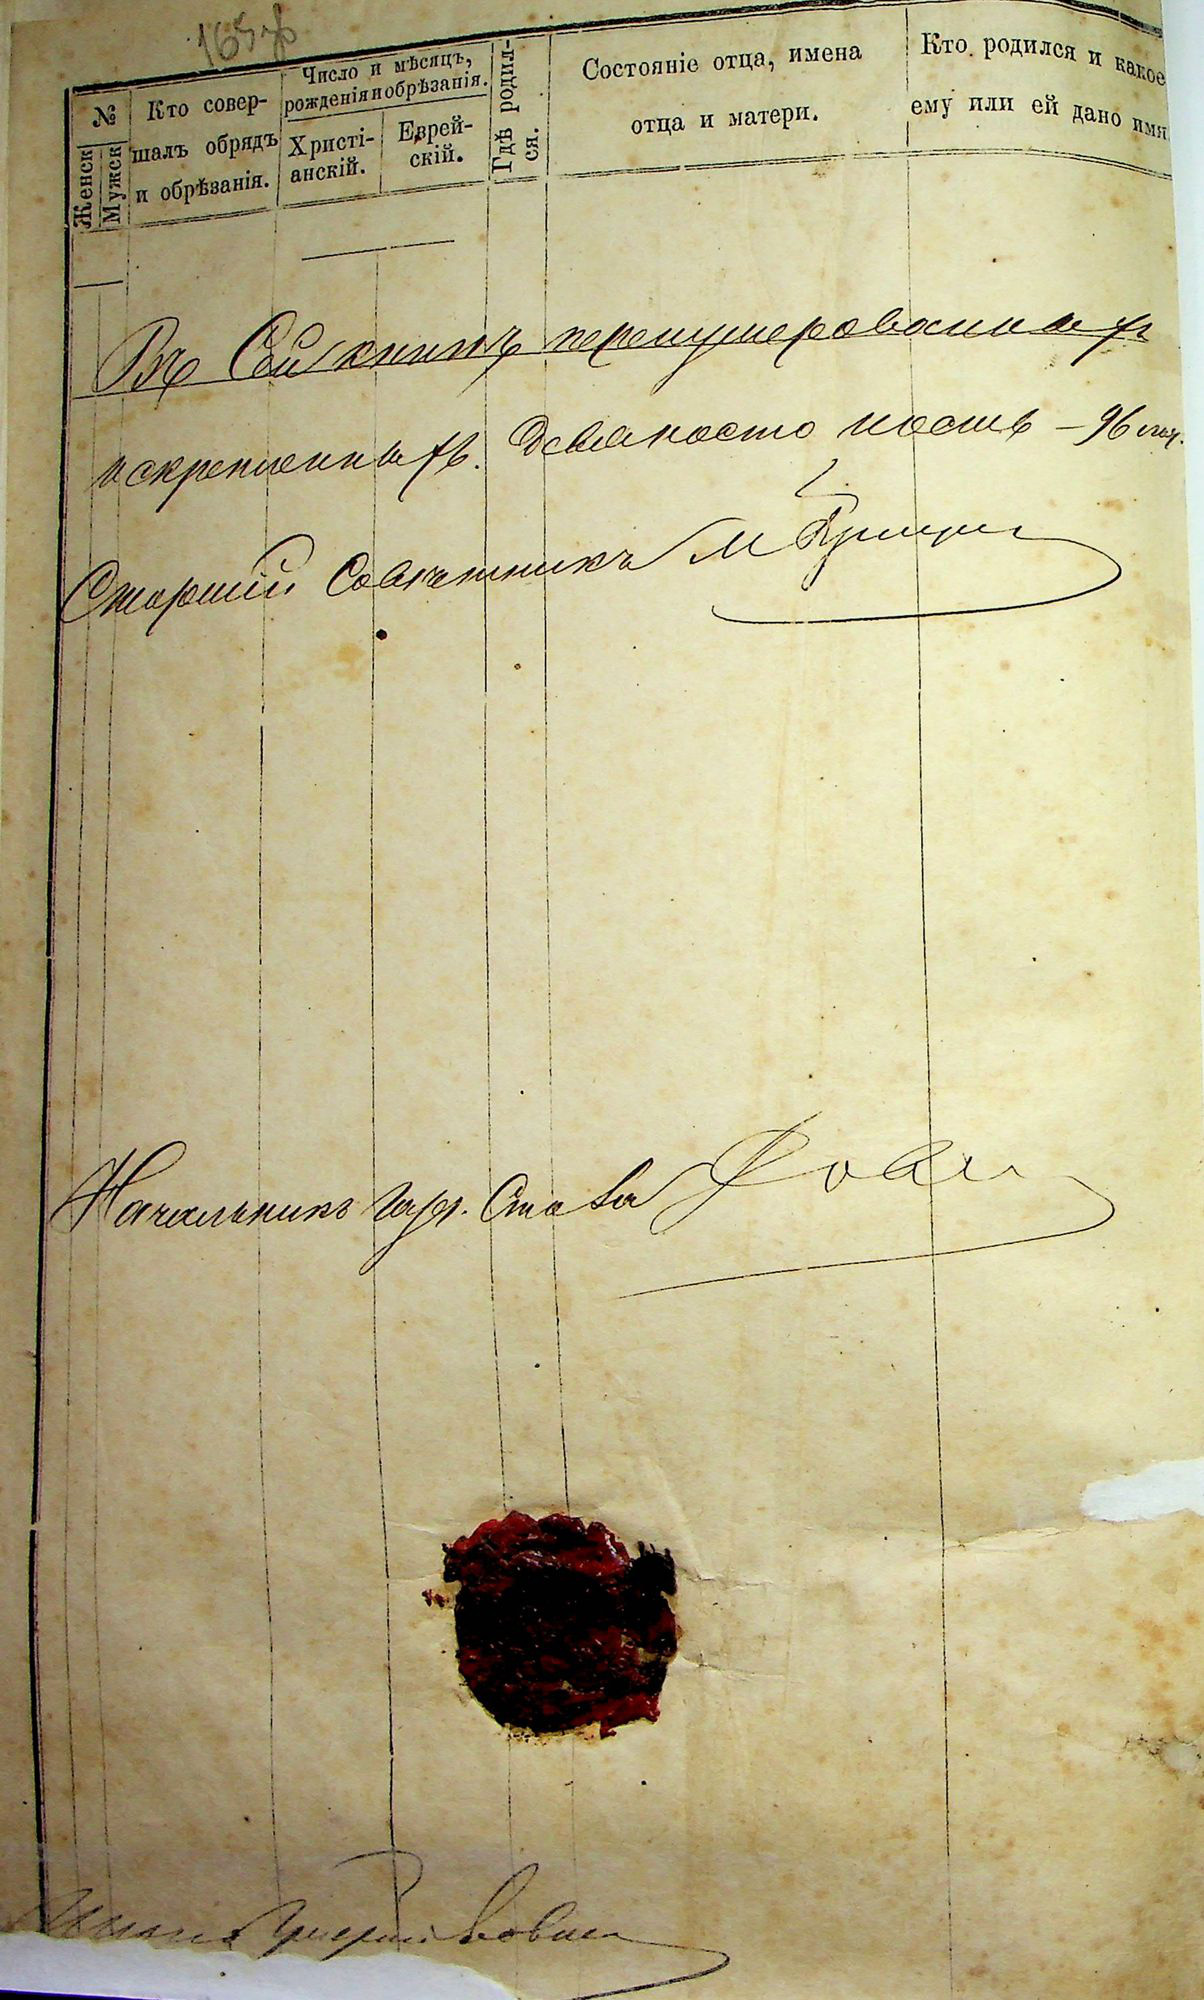 165 об
№
Женск
Мужск
Кто совер-
шалъ обрядъ
и обрѣзанія.
Число и мѣсяцъ,
рожденія и обрѣзанія.
Христі-
анскій.
Еврей-
скій.
Гдѣ родил-
ся.
Состояніе отца, имена
отца и матери.
Кто родился и какое
ему или ей дано имя
Въ Сей книгѣ перенумерованныхъ
и скрепленныхъ. девяносто шесть – 96 лист.
Старшій Совѣтникъ М
Начальникъ Стола